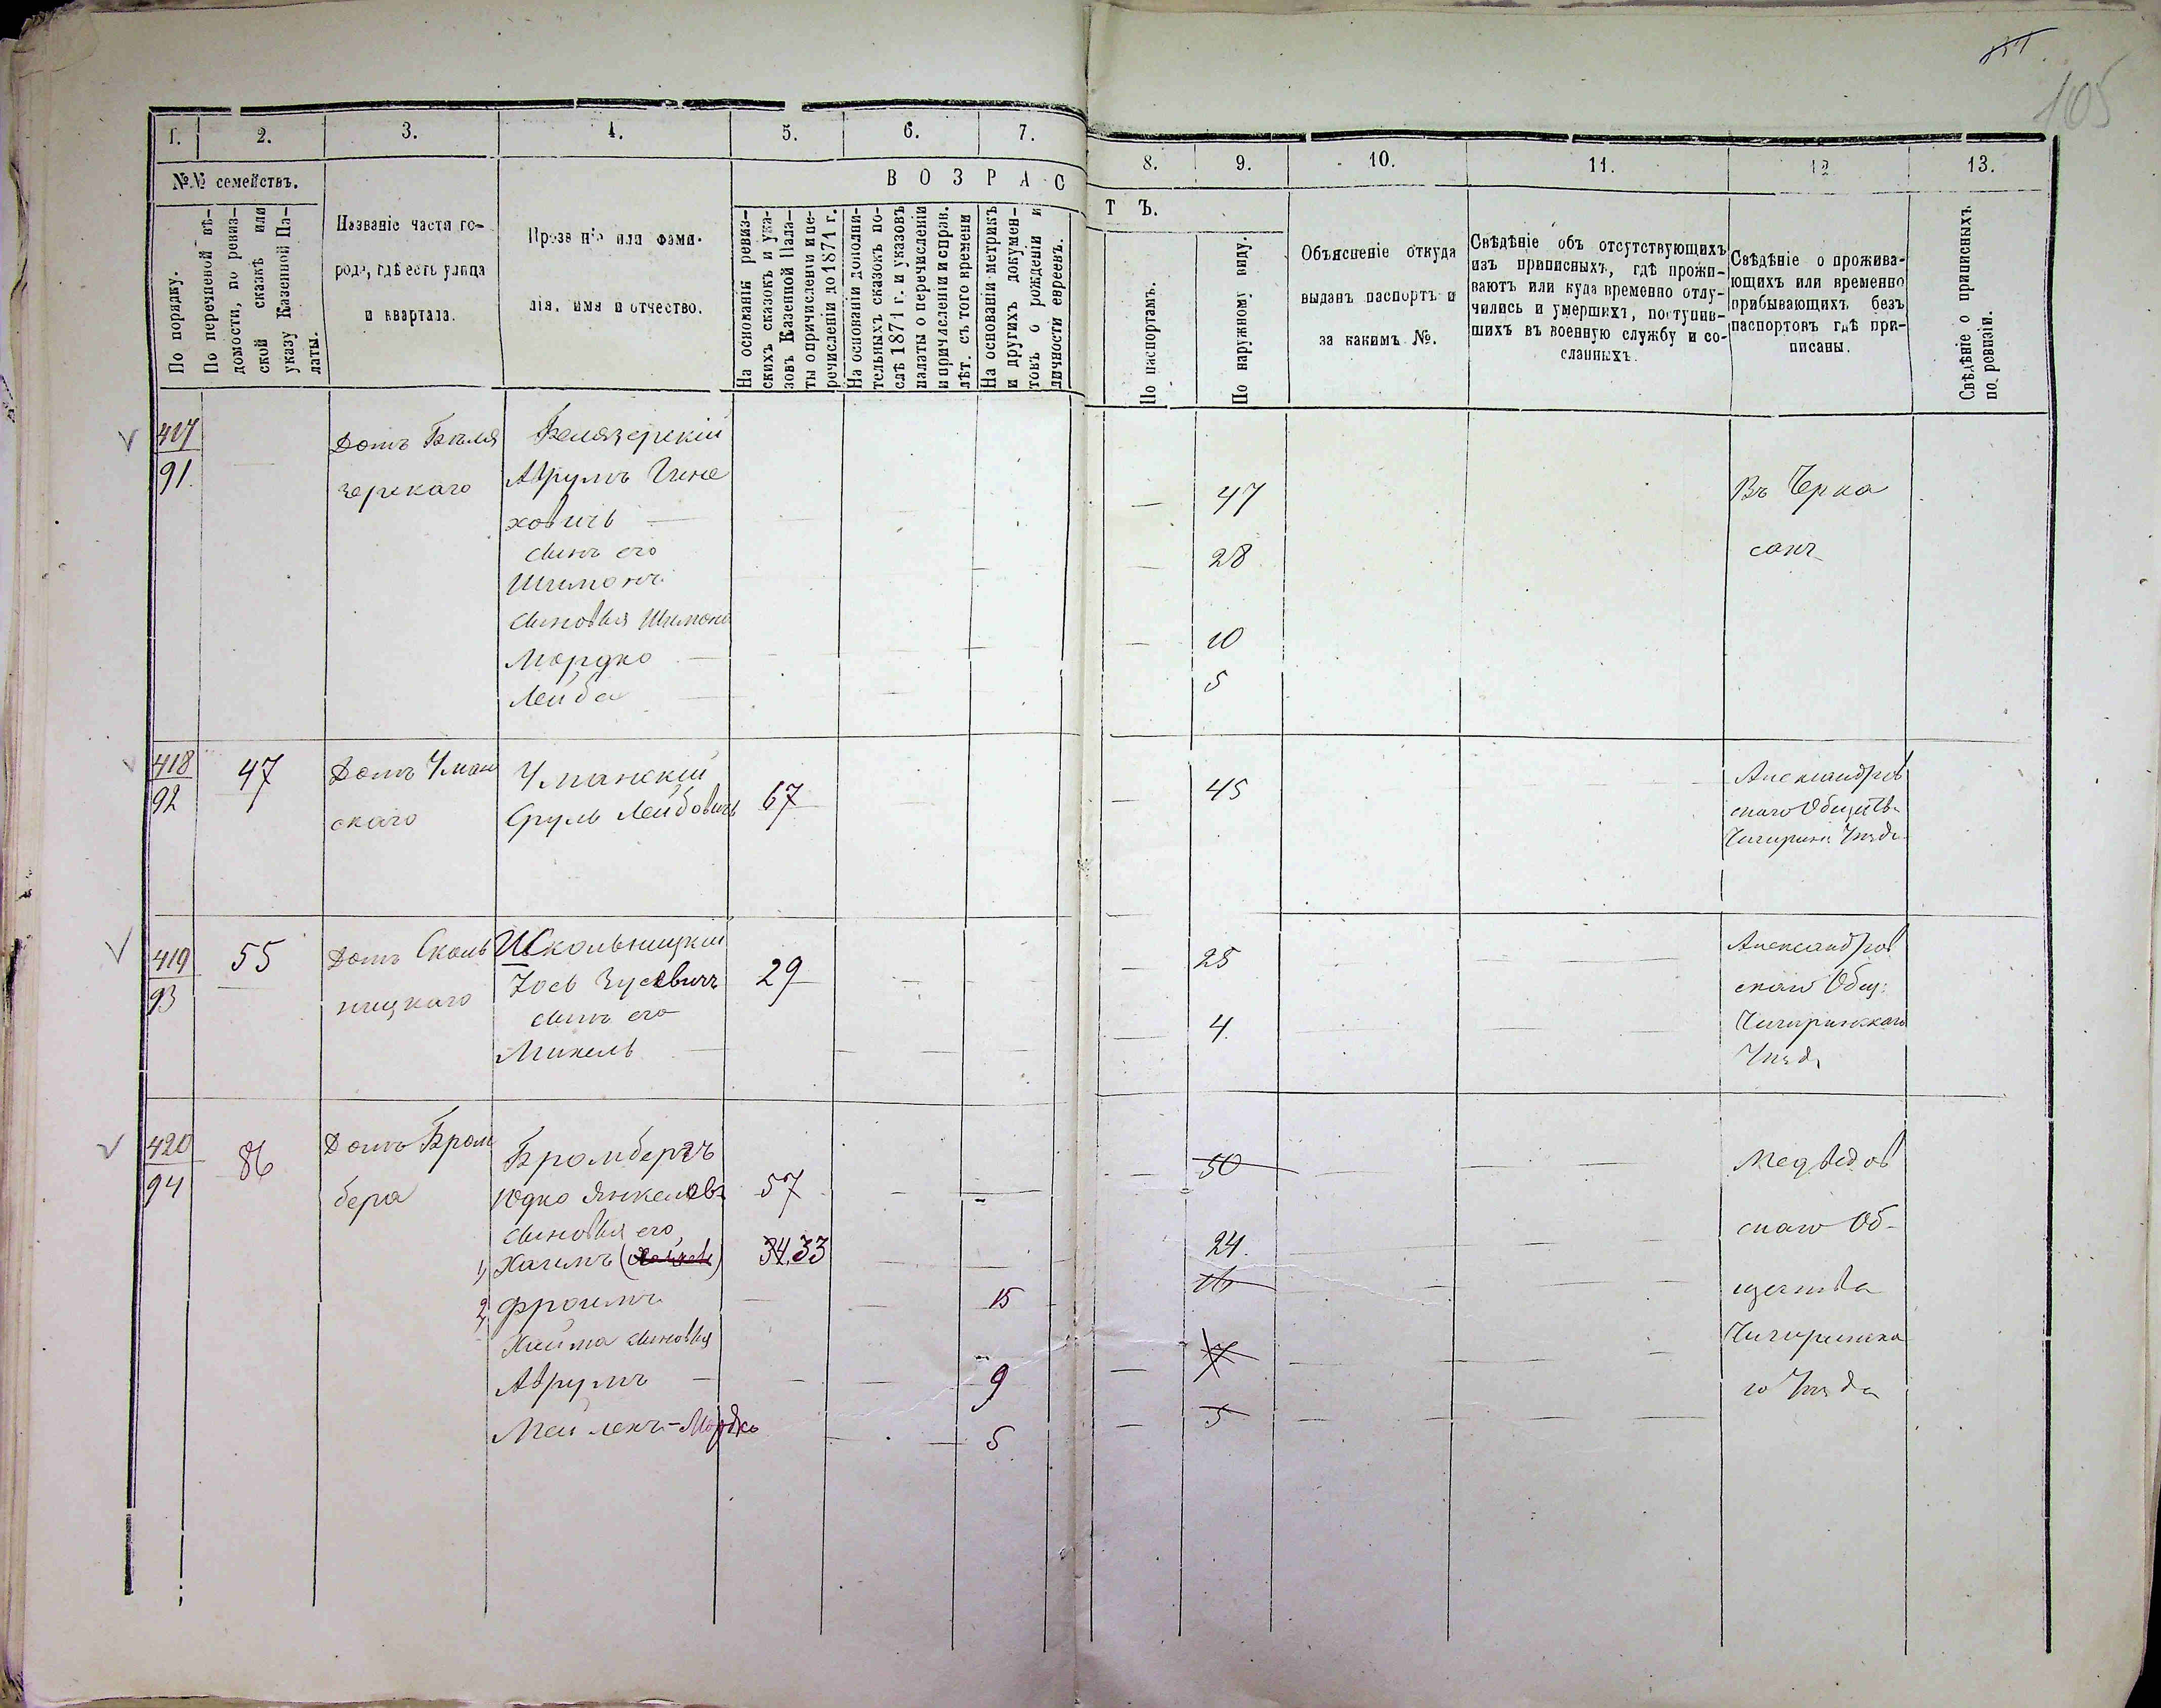 105
1. 2. 3. 4. 5. 6. 7. 8. 9. 10. 11. 12 13.
№№ семействъ.
По порядку.
По перечневой вѣ-
домости, по ревиз-
ской сказкѣ или
указу Казенной Па-
латы.
Названіе части го-
рода, гдѣ есть улица
и квартала.
Прозваніе или фами-
лія, имя и отчество.
ВОЗРАС
ТЪ.
На основаніи ревиз-
скихъ сказокъ и ука-
зовъ Казенной Пала-
ты о причисленіи и пе-
речисленіи до 1871 г.
На основаніи дополни-
тельныхъ сказокъ по-
слѣ 1871 г. и указовъ
палаты о перечисленіи
и причисленіи и справ.
лѣт. съ того времени
На основаніи метрикъ
и другихъ докумен-
товъ о рожденіи и
личности евреевъ.
По паспортамъ.
По наружному виду.
Объясненіе откуда
выданъ паспортъ и
за какимъ №.
Свѣдѣніе объ отсутствующихъ
изъ приписныхъ, гдѣ прожи-
ваютъ или куда временно отлу-
чились и умершихъ, поступив-
шихъ въ военную службу и со-
сланныхъ.
Свѣдѣніе о прожива-
ющихъ или временно
прибывающихъ безъ
паспортовъ гдѣ при-
писаны.
Свѣдѣніе о приписныхъ
по ревизіи.
417
91
Домъ Бѣля
зерскаго
Белязерскій
Аврумъ
ховичъ
сынъ его
Шимонъ
сыновья Шимона
Мордко
Лейба
47
28
10
5
Въ Черка
сахъ
418
92
47
Домъ Уман
скаго
Уманскій
Сруль Лейбовичъ
67
45
Александров
скаго Обществ
Чигирин. Уѣзда
419
93
55
Домъ Сколь
ницкаго
Школьницкій
Іось Зусевичъ
сынъ его
Михель
29
25
4
Александров
скаго Общ:
Чигиринскаго
Уѣзд.
420
94
86
Домъ Бром
берга
Бромбергъ
Юдко Янкелевъ
сыновья его
1, Хаимъ
2, Фроимъ
Хаима сыновья
Аврумъ
Мейлехъ-Мордко
57
34.33
15
9
5
50
24.
16
7
5
Медвѣдов
скаго Об-
щества
Чигиринска
го Уѣзда